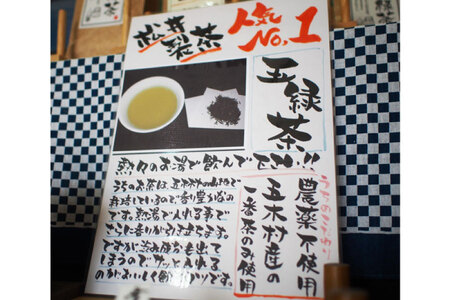 松井製茶
人気No.1
玉緑茶
熱々のお湯で飲んで下さい!!
うちのお茶は、五木村の山地で
栽培しているので香り豊かなの
です。熱湯で入れる事で
さらに香りが引き立ちます。
ですが、渋味成分も出て
しまうので、サッと入れる
のがおいしく飲むコツです。
農薬不使用
五木村産の
一番茶のみ使用
茶
緑茶